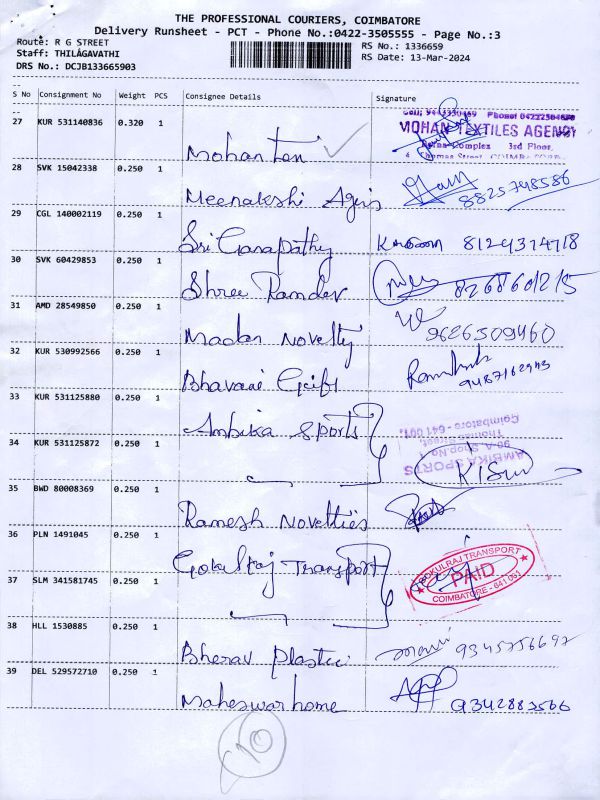 THE PROFESSIONAL COURIERS, COIMBATORE
Delivery Runsheet - PCT - Phone No.:0422-3505555 - Page No.:3
Route: R G STREET
RS No.: 1336659
Staff: THILAGAVATHI
RS Date: 13-Mar-2024
DRS No.: DCJB133665903
S No Consignment No Weight PCS Consignee Details Signature
27 KUR 531140836 0.320 1
MOHAN TEXTILES AGENCY
Complex 3rd Floor,
28 SVK 15042338 0.250 1
Meenakshi 8825748586
29 CGL 140002119 0.250 1
Sri Ganapathy 8124374718
30 SVK 60429853 0.250 1
Shree Ramdev
31 AMD 28549850 0.250 1
Madan Novelty 9626509460
32 KUR 530992566 0.250 1
Bhavani
33 KUR 531125880 0.250 1
Ambika Sports
Coimbatore - 641 001.
Thomas Street,
90-A, Shop No. 1
AMBIKA SPORTS
34 KUR 531125872 0.250 1
35 BWD 80008369 0.250 1
Ramesh Novelties
36 PLN 1491045 0.250 1
Gokulraj Transport
GOKULRAJ TRANSPORT
PAID
COIMBATORE - 641 001
37 SLM 341581745 0.250 1
38 HLL 1530885 0.250 1
Bherav Plastic
39 DEL 529572710 0.250 1
Maheswar home 9342883566
10